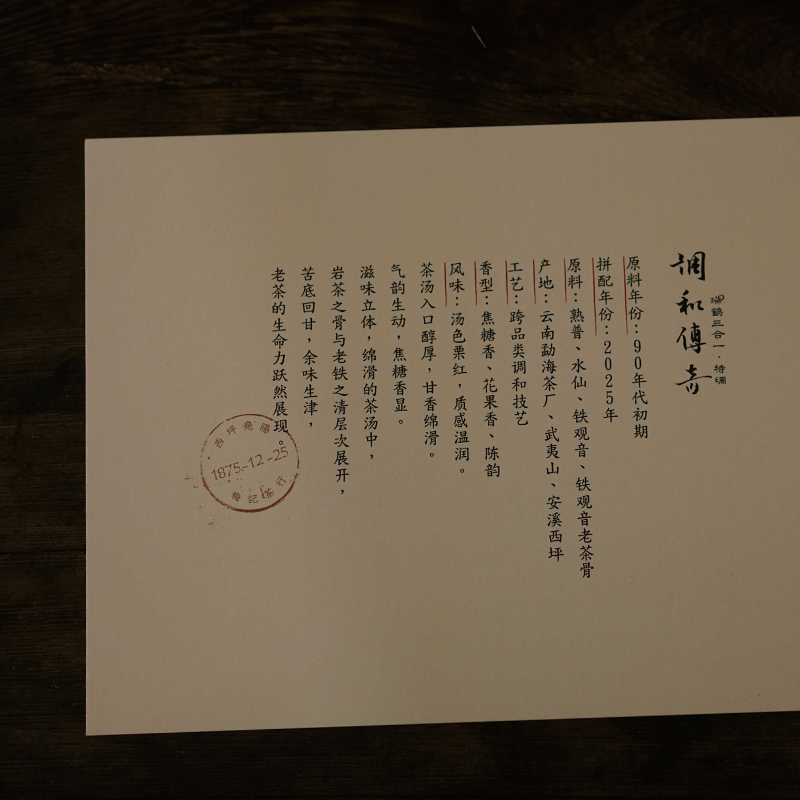 调和傳奇
瑞鶴三合一·特调
原料年份：90年代初期
拼配年份：2025年
原料：熟普、水仙、铁观音、铁观音老茶骨
产地：云南勐海茶厂、武夷山、安溪西坪
工艺：跨品类调和技艺
香型：焦糖香、花果香、陈韵
风味：汤色栗红，质感温润。
茶汤入口醇厚，甘香绵滑。
气韵生动，焦糖香显。
滋味立体，绵滑的茶汤中，
岩茶之骨与老铁之清层次展开，
苦底回甘，余味生津，
老茶的生命力跃然展现。
西坪堯陽
1875-12-25
記茶行